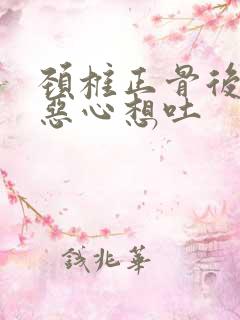 頸椎正骨後
惡心想吐
錢兆華